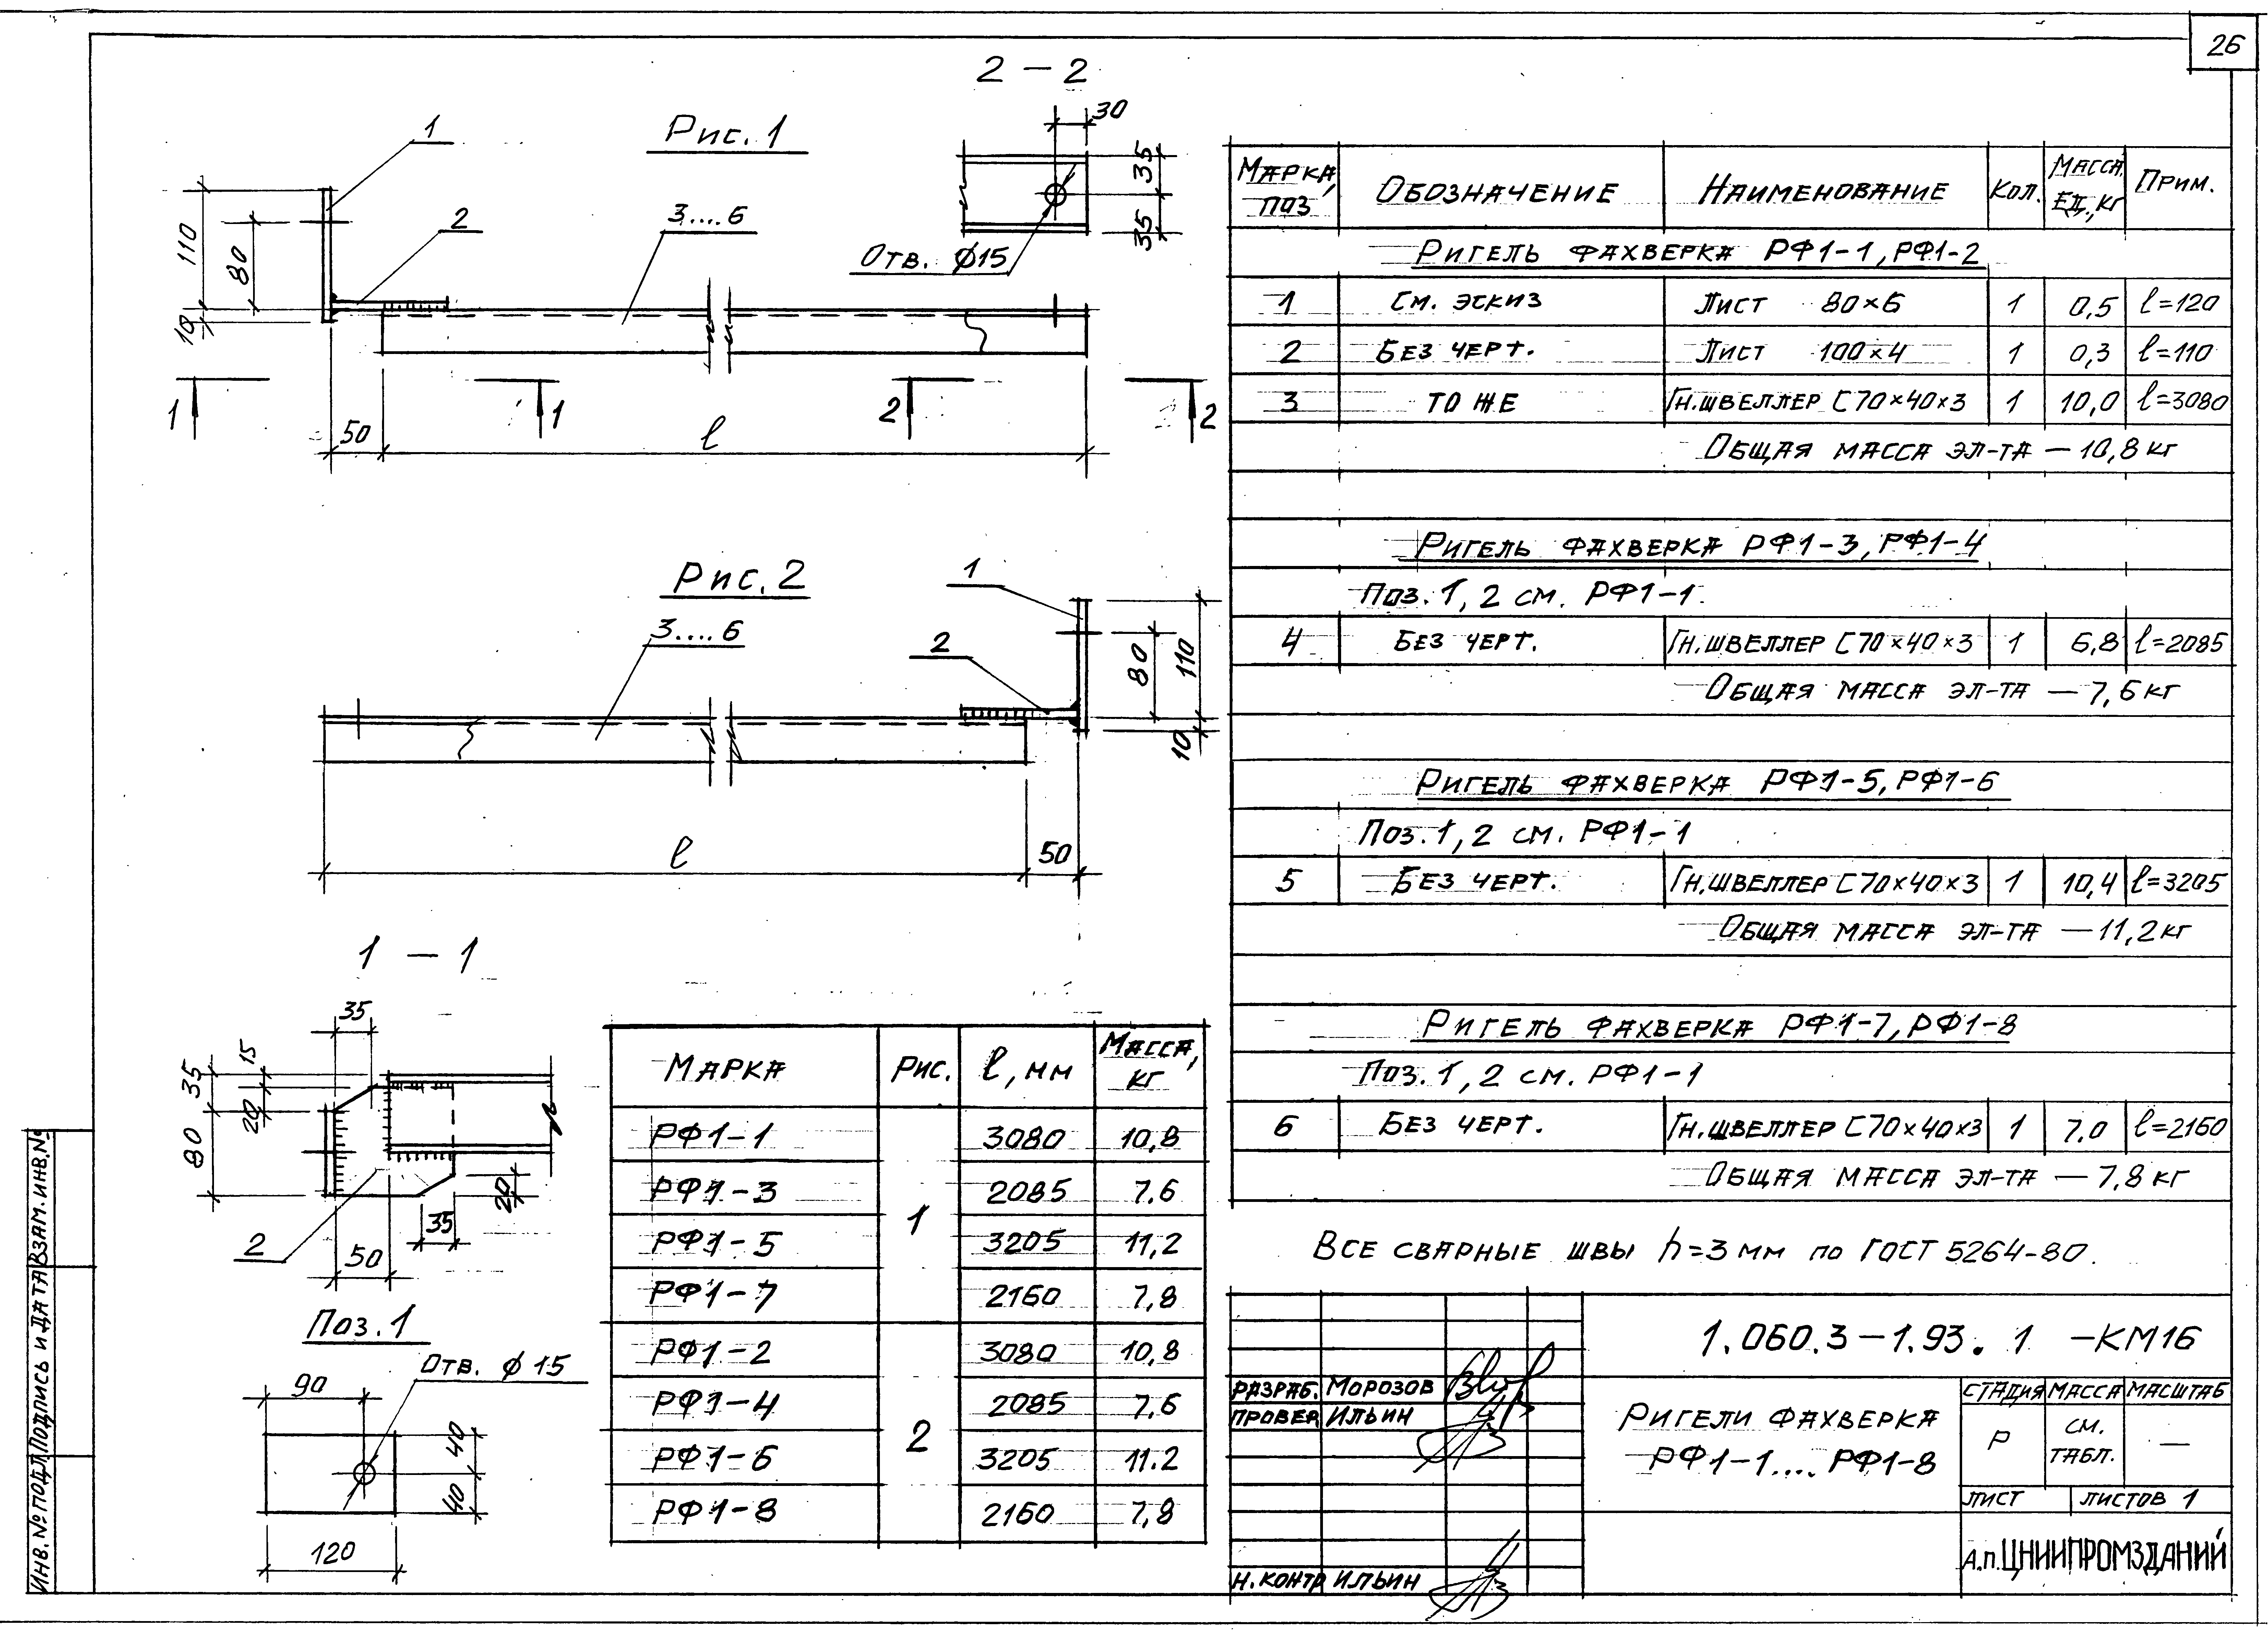 26
2 – 2
Рис. 1
1
2
3....6
30
35
35
Отв. ϕ15
110
80
10
1
1
2
2
50
ℓ
Рис. 2
1
3....6
2
80
110
10
ℓ
50
1 – 1
35
15
35
20
80
20
35
50
2
Поз. 1
Отв. ϕ 15
90
40
40
120
Марка Рис. ℓ, мм Масса, кг
РФ1-1 1 3080 10,8
РФ1-3 2085 7.6
РФ1-5 3205 11,2
РФ1-7 2160 7,8
РФ1-2 2 3080 10,8
РФ1-4 2085 7,6
РФ1-6 3205 11.2
РФ1-8 2160 7,8
Марка, поз Обозначение Наименование Кол. Масса ед., кг Прим.
Ригель фахверка РФ1-1, РФ1-2
1 См. эскиз Лист 80×6 1 0,5 ℓ=120
2 Без черт. Лист 100×4 1 0,3 ℓ=110
3 То же Гн. швеллер С70×40×3 1 10,0 ℓ=3080
Общая масса эл-та – 10,8 кг
Ригель фахверка РФ1-3, РФ1-4
Поз. 1, 2 см. РФ1-1.
4 Без черт. Гн. швеллер С70×40×3 1 6,8 ℓ=2085
Общая масса эл-та – 7,6 кг
Ригель фахверка РФ1-5, РФ1-6
Поз. 1, 2 см. РФ1-1
5 Без черт. Гн. швеллер С70×40×3 1 10,4 ℓ=3205
Общая масса эл-та – 11,2 кг
Ригель фахверка РФ1-7, РФ1-8
Поз. 1, 2 см. РФ1-1
6 Без черт. Гн. швеллер С70×40×3 1 7.0 ℓ=2160
Общая масса эл-та – 7,8 кг
Все сварные швы h=3 мм по ГОСТ 5264-80.
1.060.3-1.93. 1 -КМ16
Разраб. Морозов
Провер Ильин
Н. контр Ильин
Ригели фахверка
РФ1-1.... РФ1-8
Стадия Масса Масштаб
Р см. табл. —
Лист Листов 1
А.п. ЦНИИПРОМЗДАНИЙ
Инв. № подл Подпись и дата Взам. инв. №